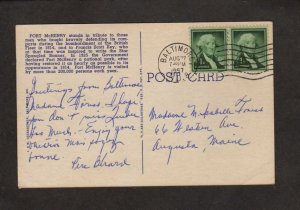 FORT McHENRY stands in tribute to those
who fought bravely defending its
during the bombardment of the British
Fleet in 1814, and to Francis Scott Key, who
at that time was inspired to write the Star
Spangled Banner. In 1925 the Government
declared Fort McHenry a national park, after
having restored it as nearly as possible to its
appearance in 1814. Fort McHenry is visited
by more than 200,000 persons each year.
BALTIMORE
AUG
POST CARD
Greetings from Baltimore,
Madame I hope
you don't miss
too much. Enjoy your
Pere Girard
Madame M. Isabelle
66 Western Ave.
Augusta, Maine